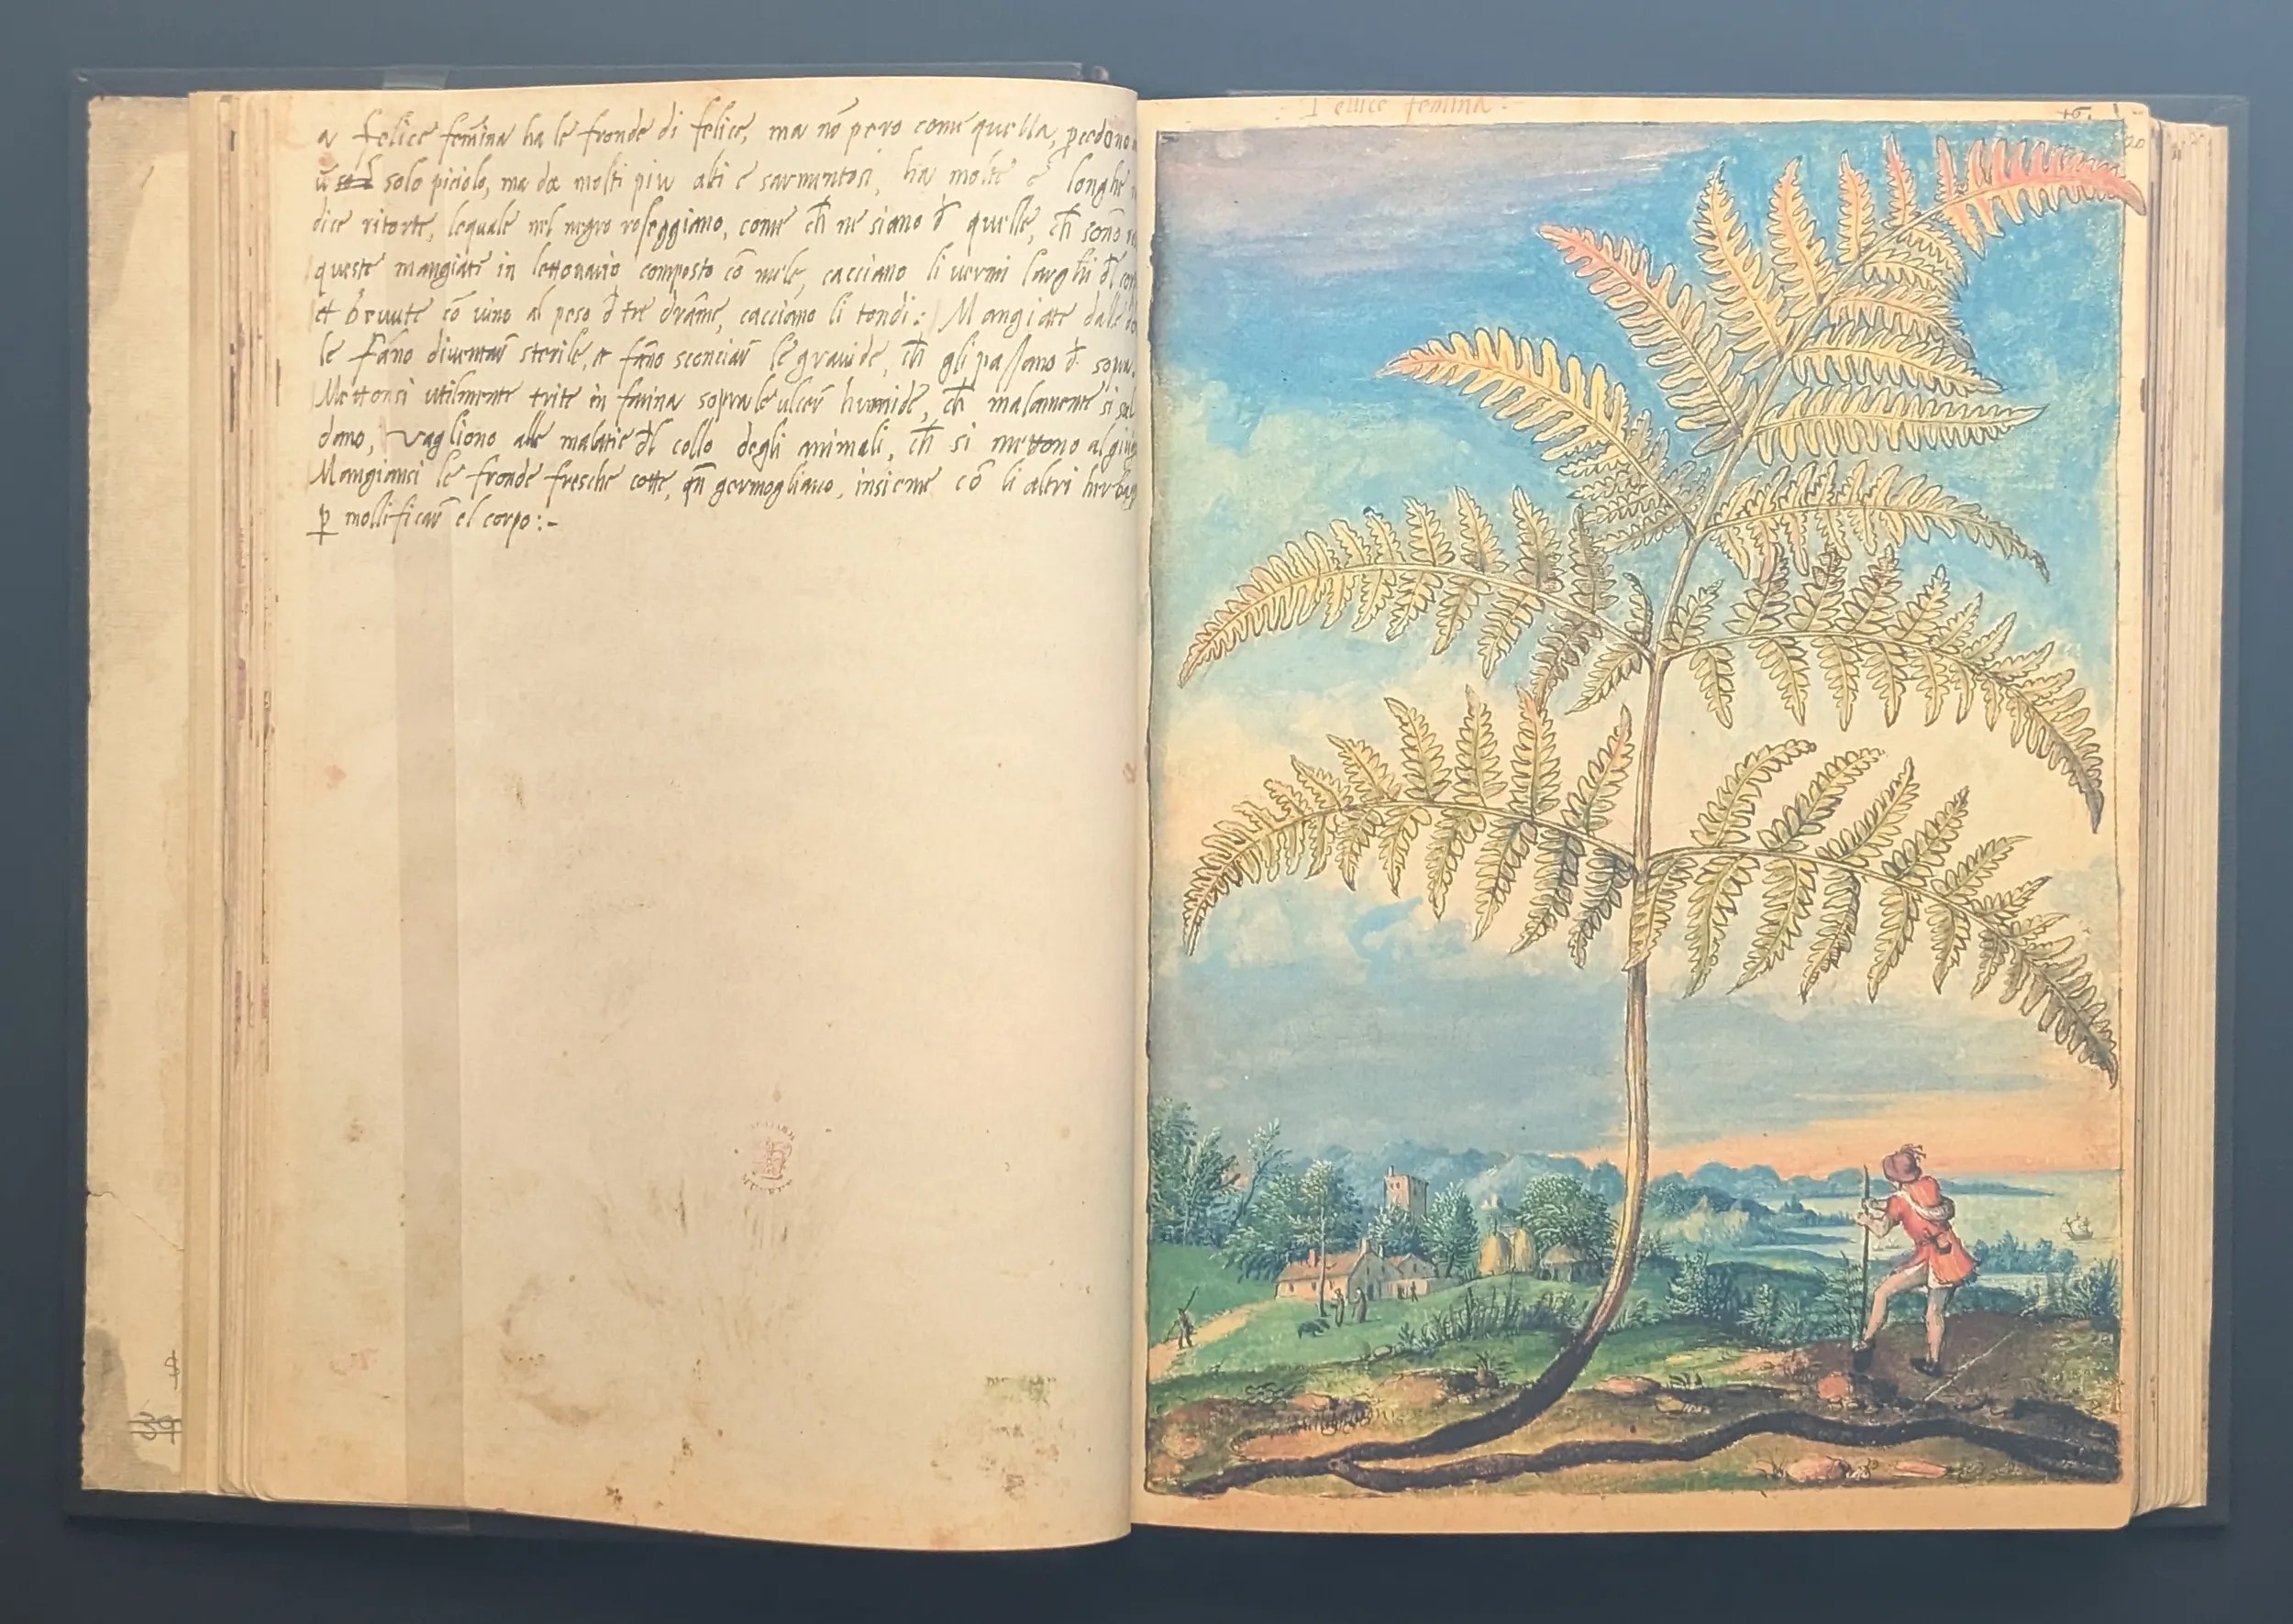 a felice femina ha le fronde di felice, ma nõ pero come quella, pcedono
ũ solo piciolo, ma da molti piu alti e sarmentosi, ha molte e longhe
dice ritorte, lequale nel negro rosseggiano, come ch̃ ne siano d̃ quelle, ch̃ sono
queste mangiate in lettovario composto cõ mele, cacciano li vermi larghi d̃l
et bevute cõ vino al peso d̃ tre drãme, cacciano li tondi: Mangiate dalle
le fãno diventar̃ sterile, e fãno sconciar̃ le gravide, ch̃ gli passano d̃ sopra.
Mettonsi utilmente trite in farina sopra le ulcer̃ humide, ch̃ malamente si sal
dano, vagliono alle malatie d̃l collo degli animali, ch̃ si mettono al
Mangiansi le fronde fresche cotte, qñ germogliano, insieme cõ li altri
p mollificar̃ el corpo:-
Fellice femina:-
16.
20
39